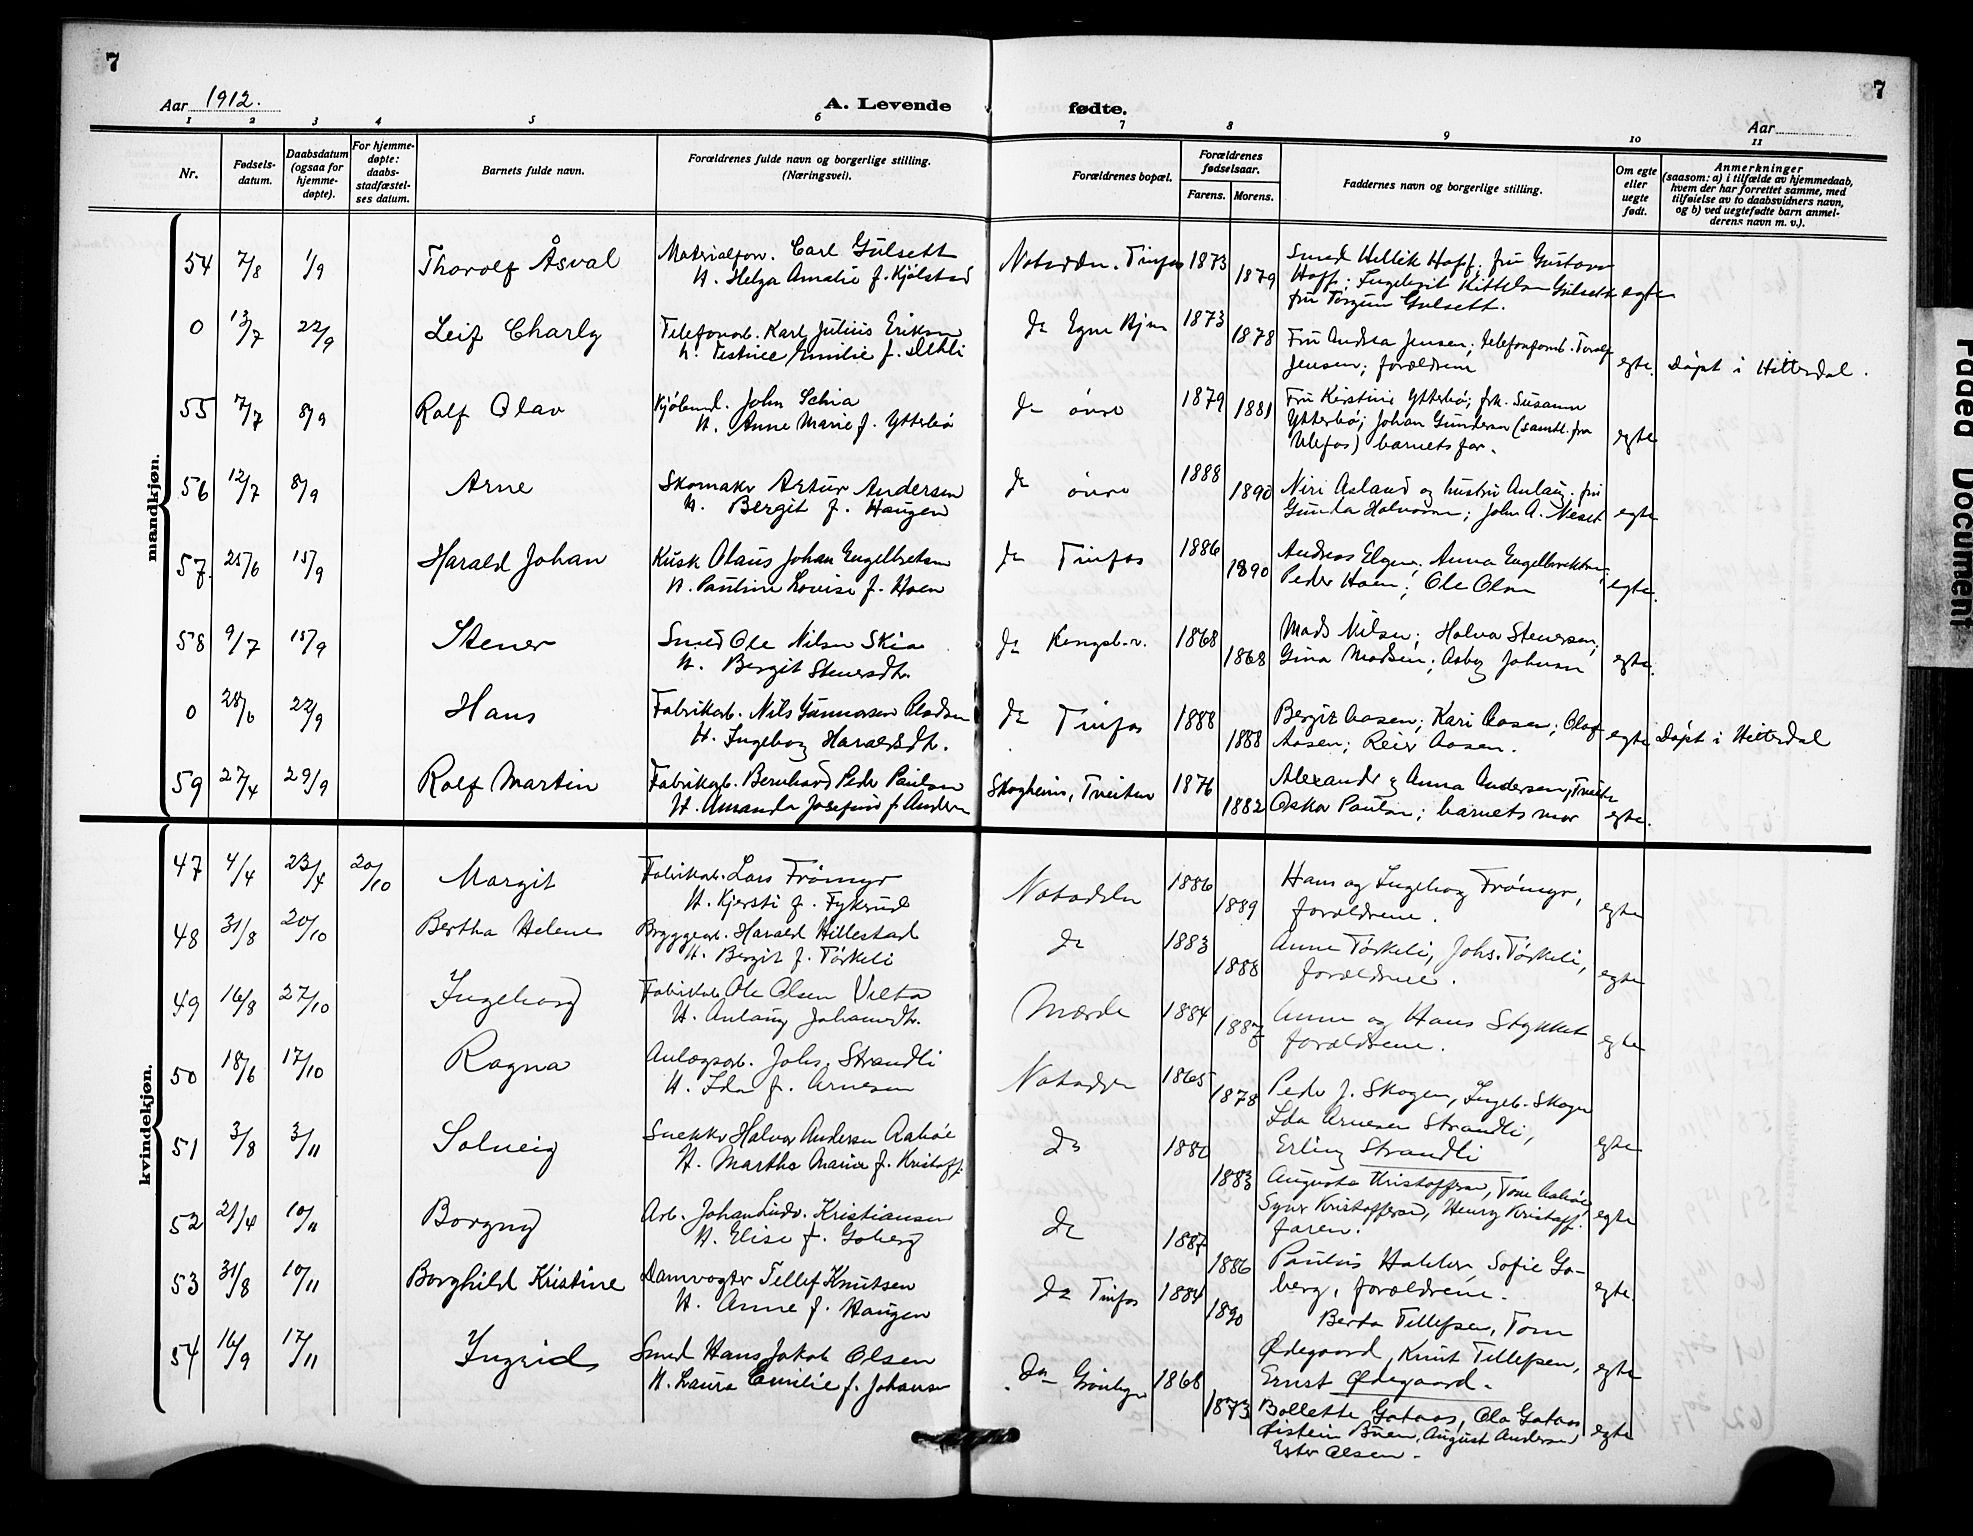 7
7
Aar 1912.
A. Levende fødte.
Aar
1 2 3 4 5 6 7 8 9 10 11
Nr.
Fødsels-
datum.
Daabsdatum
(ogsaa for
hjemme-
døpte).
For hjemme-
døpte:
daabs-
stadfæstel-
ses datum.
Barnets fulde navn.
Forældrenes fulde navn og borgerlige stilling.
(Næringsvei).
Forældrenes bopæl.
Forældrenes
fødselsaar.
Farens. Morens.
Faddernes navn og borgerlige stilling.
Om egte
eller
uegte
født.
Anmerkninger
(saasom: a) i tilfælde av hjemmedaab,
hvem der har forrettet samme, med
tilføielse av to daabsvidners navn,
og b) ved uegtefødte barn anmel-
derens navn m. v.).
mandkjøn.
54 7/8 1/9 Thorolf Åsval Materialforv. Carl Gulsett Notodden. Tinfos 1873 Smed Hellik Hoff; fru Gustava
H. Helga Amalie f. Kjølstad 1879 Hoff; Gulsett egte
fru Torgun Gulsett.
0 13/7 22/9 Leif Charly Telefonarb. Karl Julius Eriksen do Egne Hjem 1873
H. Emilie f. Dehli 1878 Fru Andrea Jensen; telefonformd. Toralf
Jensen; forældrene egte. Døpt i Hitterdal.
55 7/7 8/9 Rolf Olav Kjøbmd. John Schia do øvre 1879 Fru Kirstine Ytterbø; frk. Susanne
H. Anne Marie f. Ytterbø 1881 Ytterbø; Johan Gunderson (samtl. fra
Ulefos) barnets far. egte
56 12/7 8/9 Arne Skomaker Artur Andersen do øvre 1888
H. Bergit f. Haugen 1890 Niri Aasland og hustru Anlaug; fru
Gunda Halvorsen; John A. Neset egte
57. 25/6 15/9 Harald Johan Kusk Olaus Johan Engelbretsen do Tinfos 1886 Andreas Anna Engelbrektsen;
H. Pauline Lovise f. Hoen 1890 Peder Hoen; Ole Olsen egte.
58 9/7 15/9 Stener Smed Ole Nilsen Skia do Kongsb.v. 1868 Mads Nilsen; Halvor Stenersen;
H. Bergit Stenersdtr. 1868 Gina Madsen; Asbj. Johnsen egte.
0 28/6 22/9 Hans Fabrikarb. Nils Gunnarsen do Tinfos 1888 Bergit Aasen; Kari Aasen; Olaf
H. Ingeborg Haraldsdtr. 1888 Aasen; Reier Aasen. egte Døpt i Hitterdal
59 27/4 29/9 Rolf Martin Fabrikarb. Bernhard Peder Paulsen Skogheim, Tveiten 1876 Alexander og Anna Andersen, Tveiten
H. Amanda Josefine f. Andersen 1882 Oskar Paulsen; barnets mor egte.
kvindekjøn.
47 4/4 23/4 20/10 Margit Fabrikarb. Lars Frømyr Notodden 1886 Hans og Ingeborg Frømyr,
H. Kjersti f. Fykerud 1889 forældrene. egte
48 31/8 20/10 Bertha Helene Bryggearb. Harald Hillestad do 1883 Anne Tørkeli, Johs. Tørkeli,
H. Bergit f. Tørkeli 1888 forældrene. egte
49 16/8 27/10 Ingeborg Fabrikarb. Ole Olsen Velta Mærde 1884 Anne og Hans Stykket
H. Anlaug Johannesdtr. 1887 forældrene. egte
50 18/6 17/10 Ragna Anlægsarb. Johs. Strandli Notodden 1865
H. Ida f. Arnesen 1878 Peder J. Skogen, Ingeb. Skogen
Ida Arnesen Strandli,
Erling Strandli egte
51 3/8 3/11 Solveig Snekker Halvor Andersen Aabøe do 1880
H. Martha Marie f. Kristoff. 1883 Augusta Kristoffersen, Tom Aabøe,
Syver Kristoffersen, Henry Kristoff.
faren. egte
52 21/4 10/11 Borgny Arb. Johan Ludv. Kristiansen do 1887
H. Elise f. Goberg 1886 Paulus Hakker, Sofie Go-
berg, forældrene. egte.
53 31/8 10/11 Borghild Kristine Damvogter Tellef Knutsen do Tinfos 1884
H. Anne f. Haugen 1890 Berta Tellefsen, Tom
Ødegaard, Knut Tellefsen,
Ernst Ødegaard. egte
54 16/9 17/11 Ingrid Smed Hans Jakob Olsen do Grønbyen 1868
H. Laura Emilie f. Johansen 1873 Bollette Gataas, Ola Gataas
Øistein Buen, August Andersen
Ester Olsen. egte
Faded Document